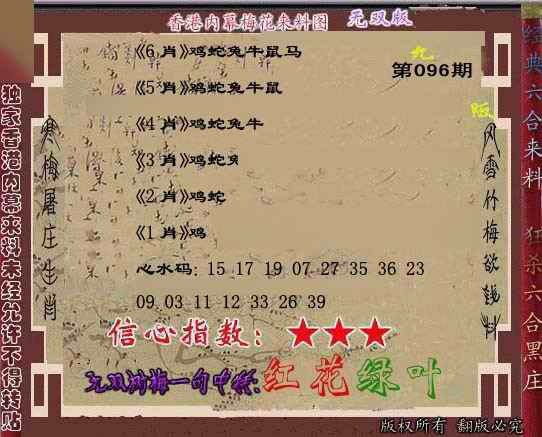 香港内幕梅花来料图 无双版
《6肖》鸡蛇兔牛鼠马
九
第096期
《5肖》鸡蛇兔牛鼠
《4肖》鸡蛇兔牛
《3肖》鸡蛇兔
《2肖》鸡蛇
《1肖》鸡
心水码: 15 17 19 07 27 35 36 23
09 03 11 12 33 26 39
信心指数: ★★★
红花绿叶
版权所有 翻版必究
独家香港内幕来料未经允许不得转贴
寒梅屠庄生肖
风雪竹梅欲钱料
经典六合来料
狂杀六合黑庄